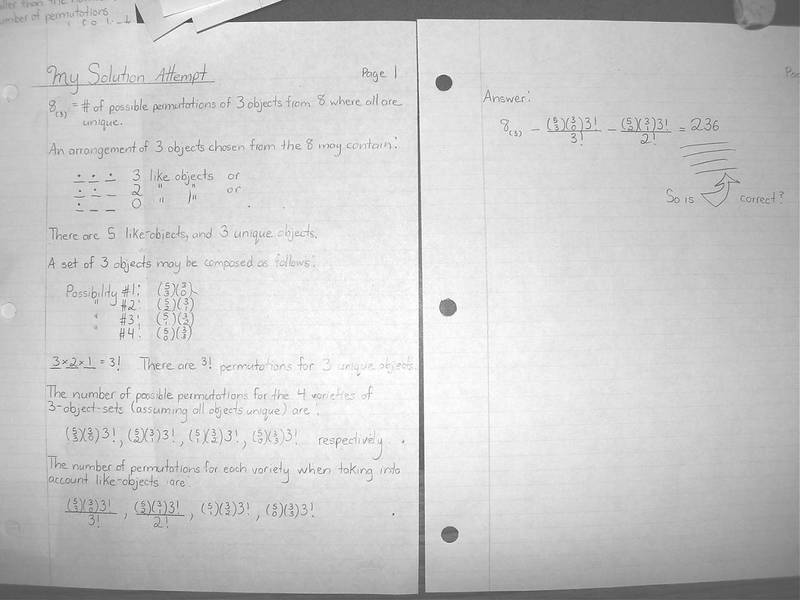 number of permutations
My Solution Attempt
Page 1
8₍₃₎ = # of possible permutations of 3 objects from 8 where all are
unique.
An arrangement of 3 objects chosen from the 8 may contain:
3 like objects or
2 " " or
0 " "
There are 5 like-objects, and 3 unique objects.
A set of 3 objects may be composed as follows:
Possibility #1: (5 3)(3 0)
" #2: (5 2)(3 1)
" #3: (5 1)(3 2)
#4: (5 0)(3 3)
3×2×1 = 3! There are 3! permutations for 3 unique objects.
The number of possible permutations for the 4 varieties of
3-object-sets (assuming all objects unique) are:
(5 3)(3 0)3!, (5 2)(3 1)3!, (5 1)(3 2)3!, (5 0)(3 3)3! respectively.
The number of permutations for each variety when taking into
account like-objects are:
(5 3)(3 0)3!/3!, (5 2)(3 1)3!/2!, (5 1)(3 2)3!, (5 0)(3 3)3!
Answer:
8₍₃₎ - (5 3)(3 0)3!/3! - (5 2)(3 1)3!/2! = 236
So is correct?